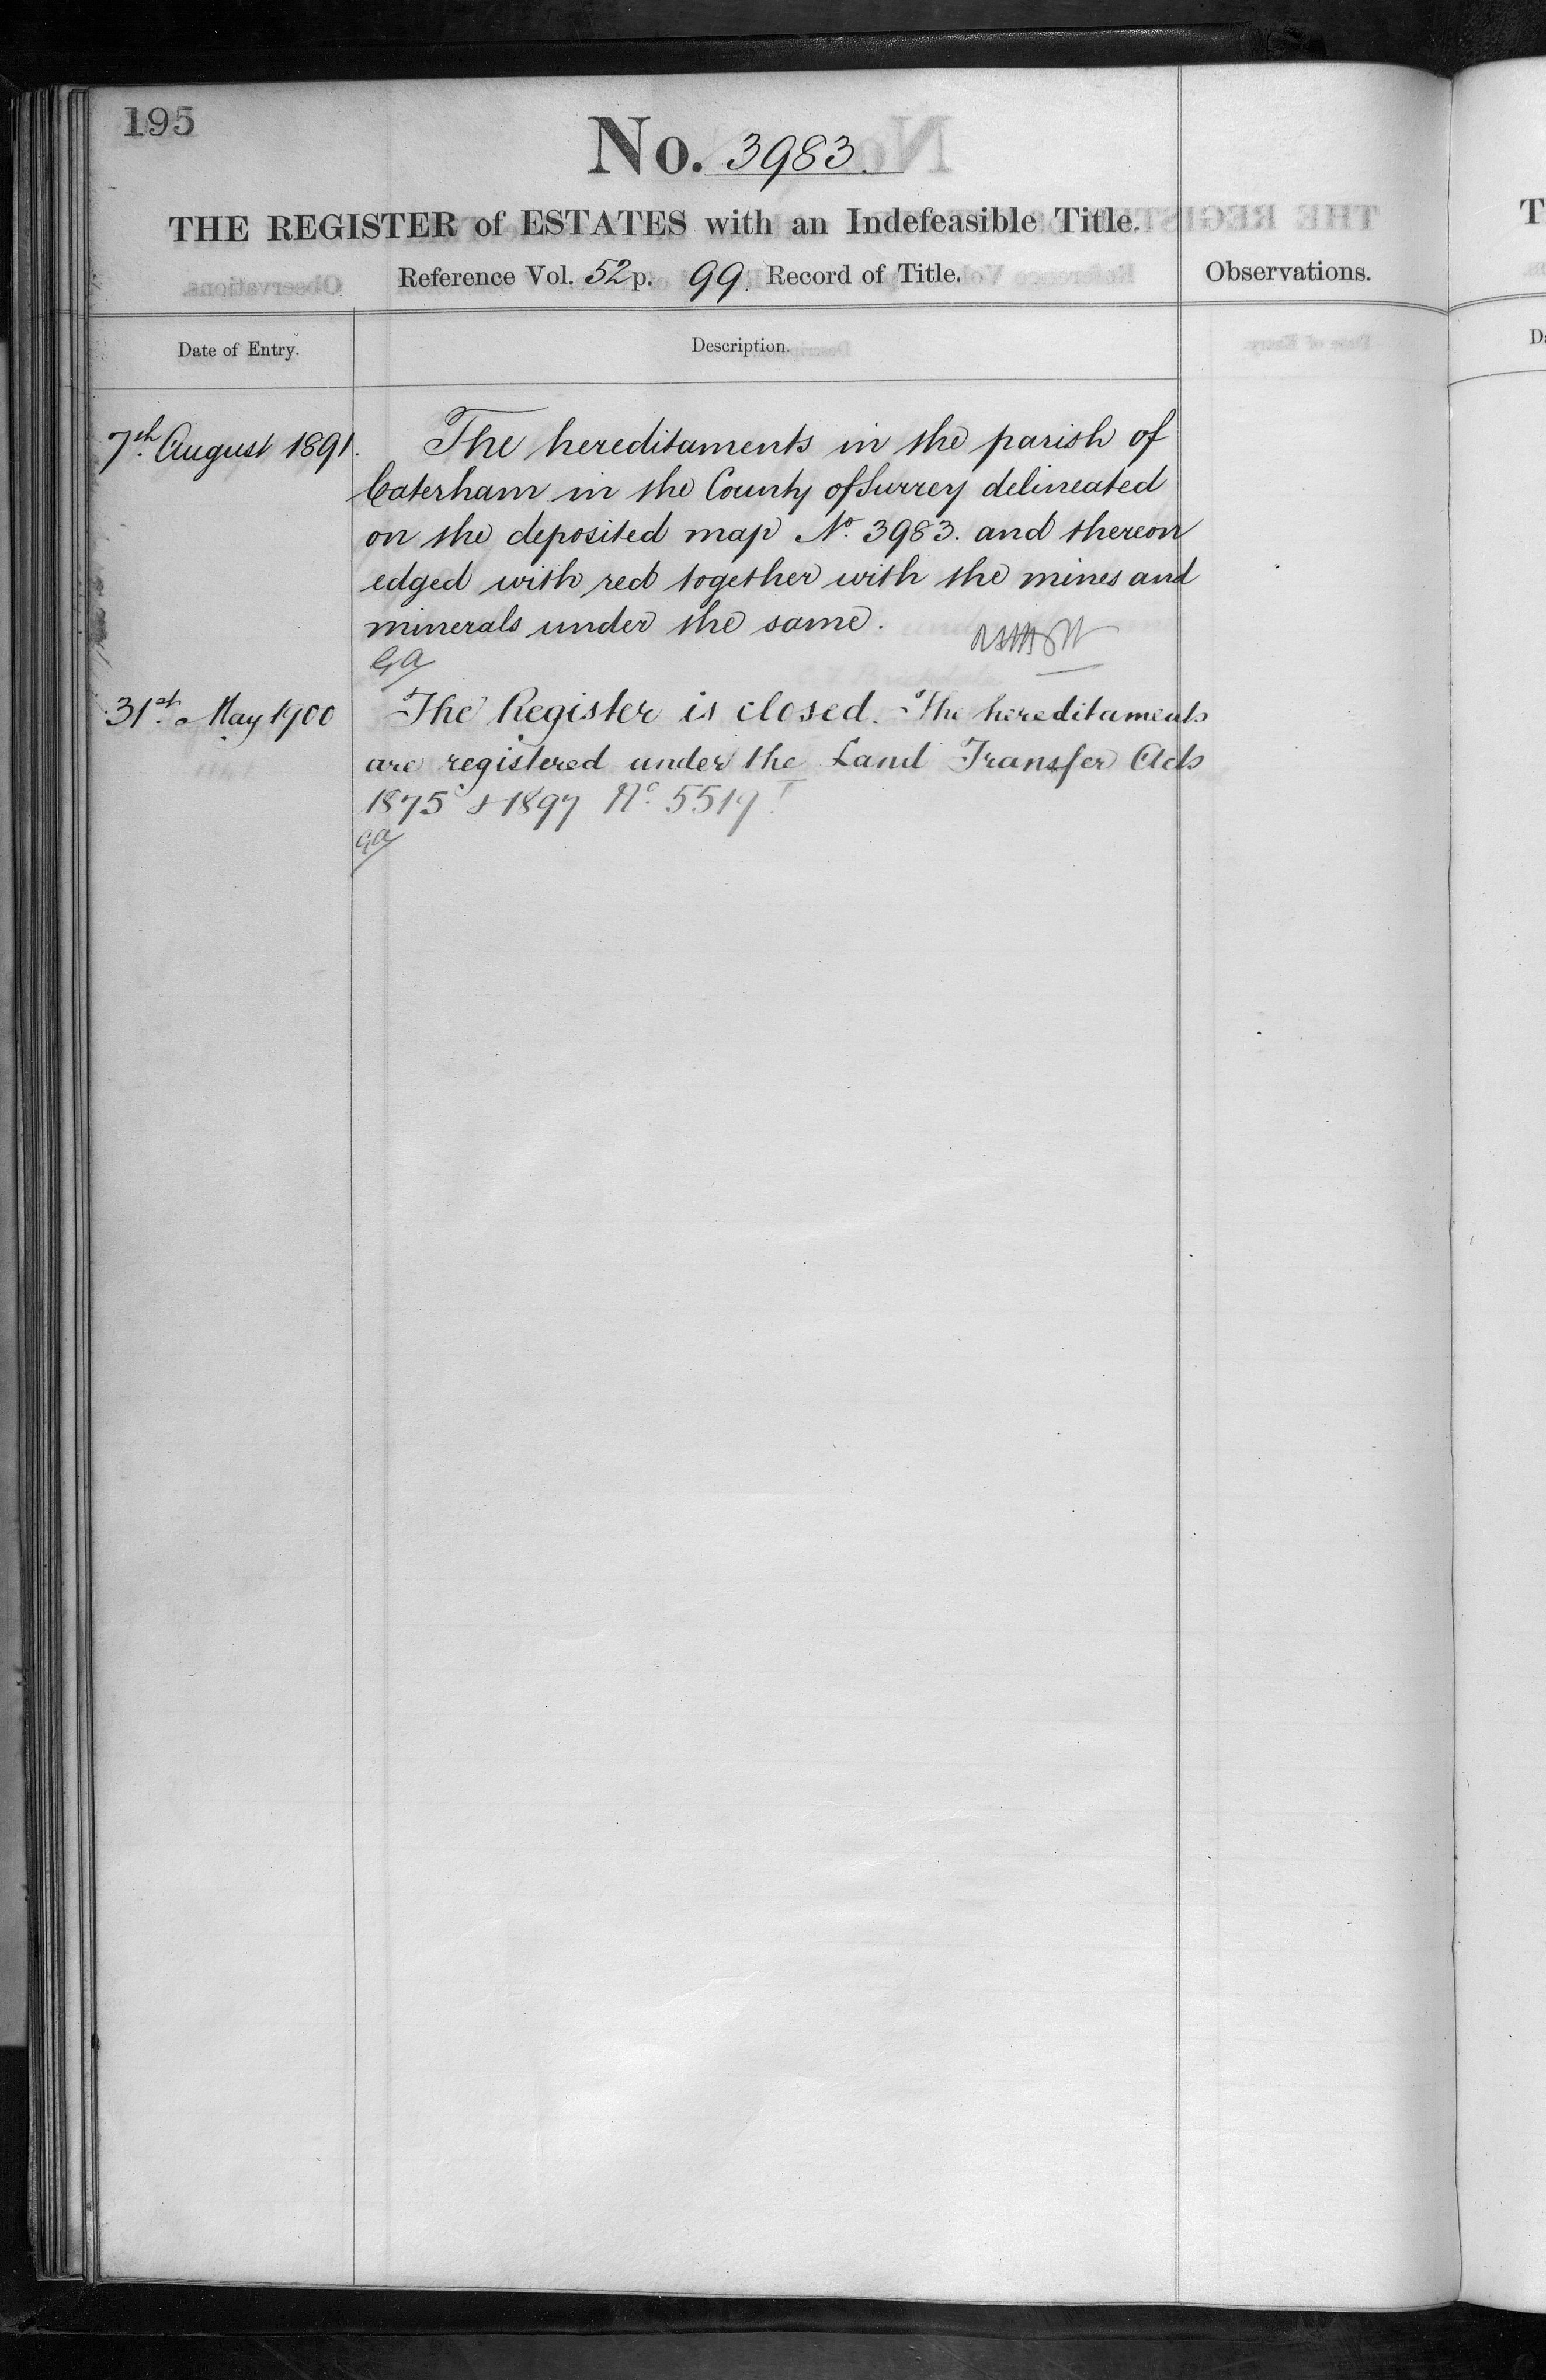 195
No. 3983.
THE REGISTER of ESTATES with an Indefeasible Title.
Reference Vol. 52 p. 99. Record of Title.
Observations.
Date of Entry.
Description.
7th August 1891.
The hereditaments in the parish of
Caterham in the County of Surrey delineated
on the deposited map No. 3983. and thereon
edged with red together with the mines and
minerals under the same.
GA
31st May 1900
The Register is closed. The hereditaments
are registered under the Land Transfer Acts
1875 & 1897 No. 5519
GA